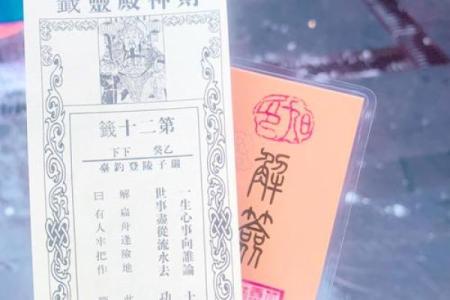 財神殿靈籤
第二十籤
乙癸 下下
嚴子陵登釣臺
一生心事向誰論 十
世事盡從流水去 功
解 舟逢險地
曰 有人牢把作
解簽